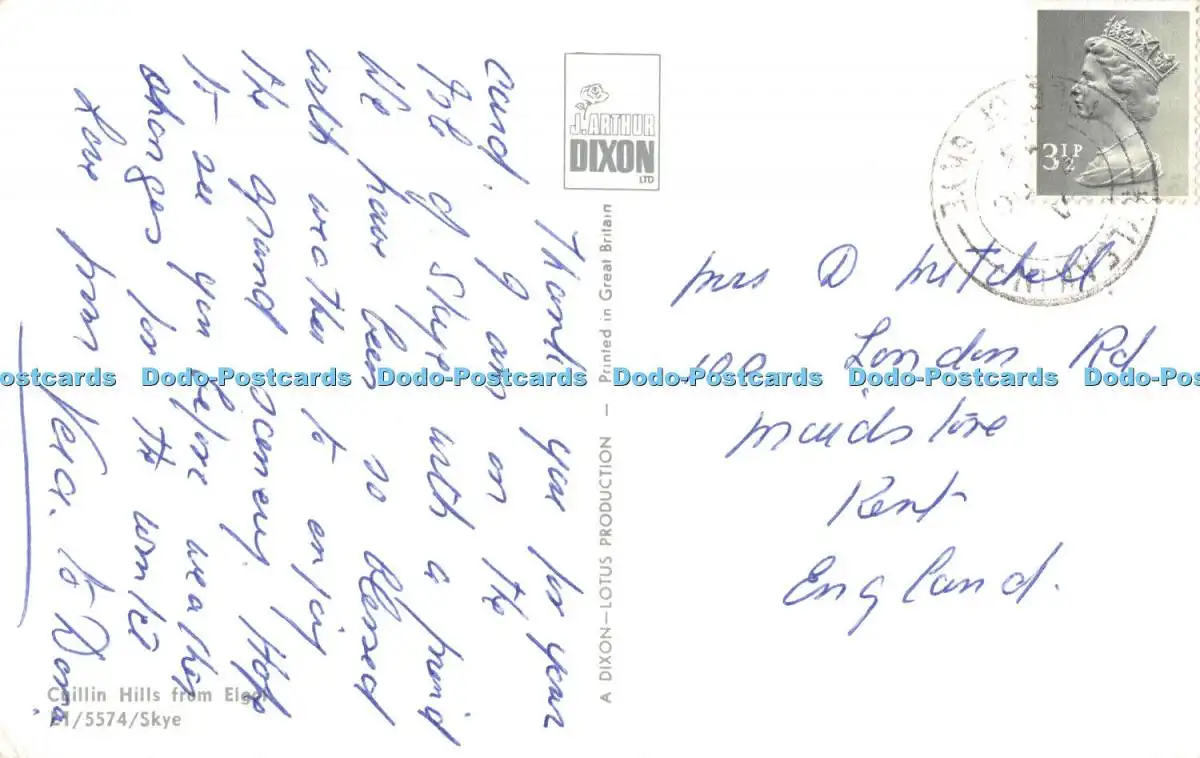 Thank you for your
card. I am on the
Isle of Skye with a friend
We have been so blessed
with weather to enjoy
the grand scenery. Hope
to see you before weather
changes for the winter
Love from Vera. to Dona.
J. ARTHUR
DIXON
LTD
A DIXON—LOTUS PRODUCTION — Printed in Great Britain
3½P
Mrs D Mitchell
100 London Rd
Maidstone
Kent
England.
Cuillin Hills from Elgol
E1/5574/Skye
Dodo-Postcards Dodo-Postcards Dodo-Postcards Dodo-Postcards Dodo-Postcards